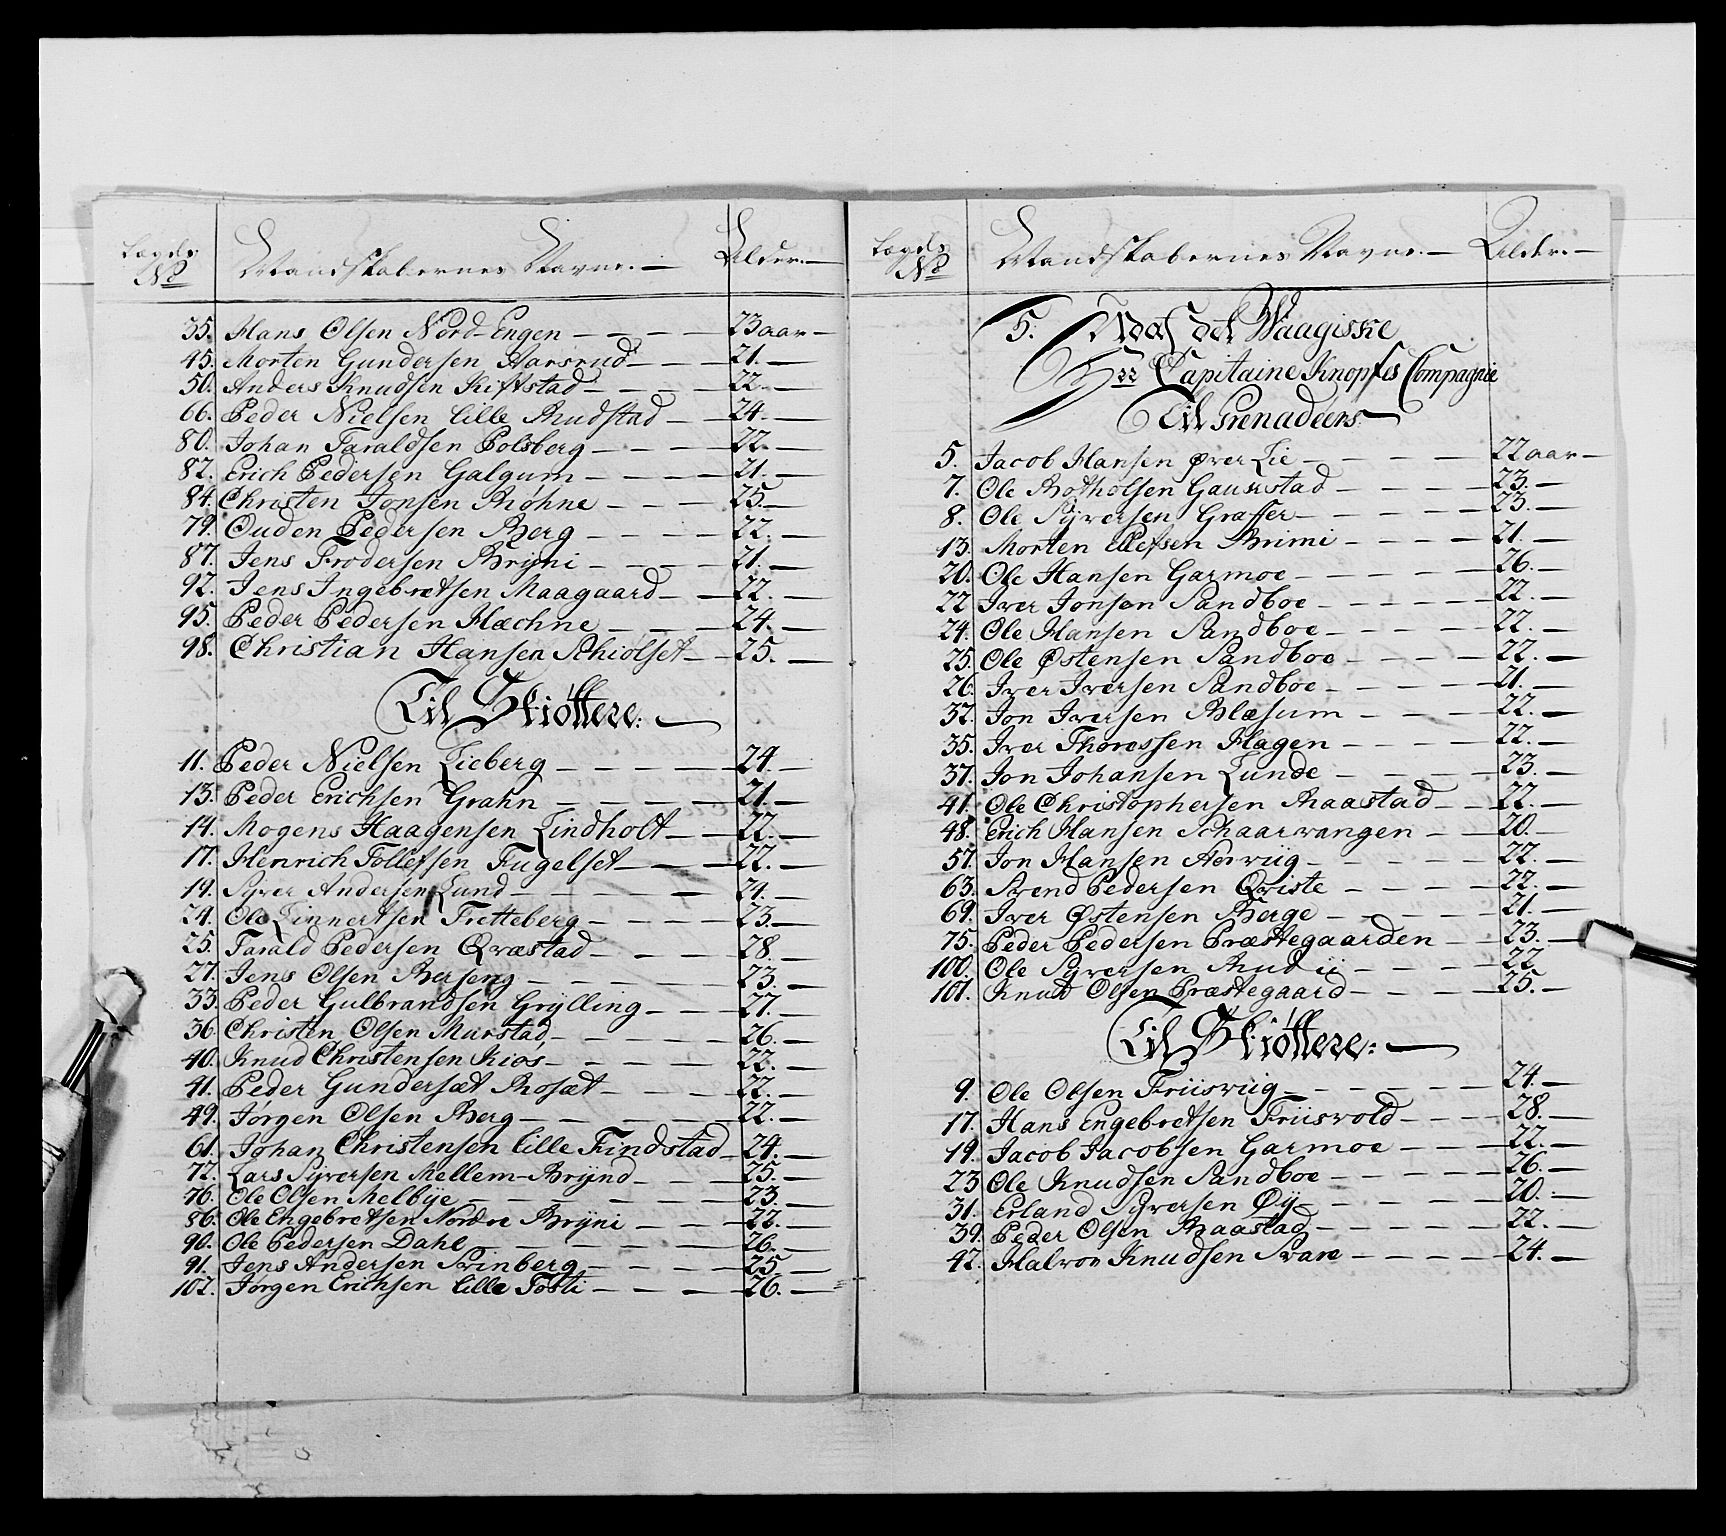 Lægds No Mandskabernes Navne. Alder.
35. Hans Olsen Nord-Engen 23 aar
45. Morten Gundersen Aarsrud 21.
50. Anders Knudsen Kiftstad 22.
66. Peder Nielsen lille Rudstad 24.
80. Johan Taraldsen Polsberg 22.
82. Erich Pedersen Galgum 21.
84. Christen Jonsen Røhne 25.
79. Ouden Pedersen Berg 22.
87. Jens Frodersen Brÿni 21.
92. Jens Ingebretsen Maagaard 22.
95. Peder Pedersen Hæchne 24.
98. Christian Hansen Schiølset 25.
Til Skiøttere:
11. Peder Nielsen Lieberg 24.
13. Peder Erichsen Grahn 21.
14. Mogens Haagensen Lindholt 22.
17. Henrich Tollefsen Fugelset 22.
19. Syver Andersen Lund 24.
24. Ole Linnertsen Fretteberg 23.
25. Tarald Pedersen Qvæstad 28.
27. Jens Olsen Berseng 23.
33. Peder Gulbrandsen Grÿlling 27.
36. Christen Olsen Murstad 26.
40. Knud Christensen Kios 22.
41. Peder Gundersæt Rosæt 22.
49. Jørgen Olsen Berg 22.
61. Johan Christensen lille Findstad 24.
72. Lars Syversen Mellem-Brÿnd 25.
76. Ole Olsen Melbÿe 23.
86. Ole Engebretsen Nordre Brÿni 22.
90. Ole Pedersen Dahl 26.
91. Jens Andersen Svinberg 25
102. Jørgen Erichsen lille Tosti 26.
Lægds No Mandskabernes Navne. Alder.
5. Udaf det Waagiske
Hrr Capitaine Knopfs Compagnie
Til Grenadeers
5. Jacob Hansen øver Lie 22 aar
7. Ole Botholsen Gaustad 23.
8. Ole Syversen Graffer 23.
13. Morten Ellefsen Brimi 21.
20. Ole Hansen Garmoe 26.
22 Iver Jonsen Sandboe 22.
24. Ole Hansen Sandboe 22.
25. Ole Østensen Sandboe 22.
26. Iver Iversen Sandboe 21.
32. Jon Iversen Blæsum 22.
35. Iver Thoressen Hagen 22.
37. Jon Johansen Lunde 23.
41. Ole Christophersen Raastad 22.
48. Erich Hansen Schaarvangen 20.
57. Jon Hansen Nerviig 22.
63. Svend Pedersen Qviste 22.
69. Iver Østensen Berge 21.
75. Peder Pedersen Præstegaarden 23.
100. Ole Syversen Rudii 22
101. Knud Olsen Præstegaard 25.
Til Skiøttere:
9. Ole Olsen Friisviig 24.
17. Hans Engebretsen Friisvold 28.
19. Jacob Jacobsen Garmoe 22.
23 Ole Knudsen Sandboe 26.
31. Erland Syversen Øÿ 20.
39. Peder Olsen Raastad 22.
42. Halvor Knudsen Svare 24.